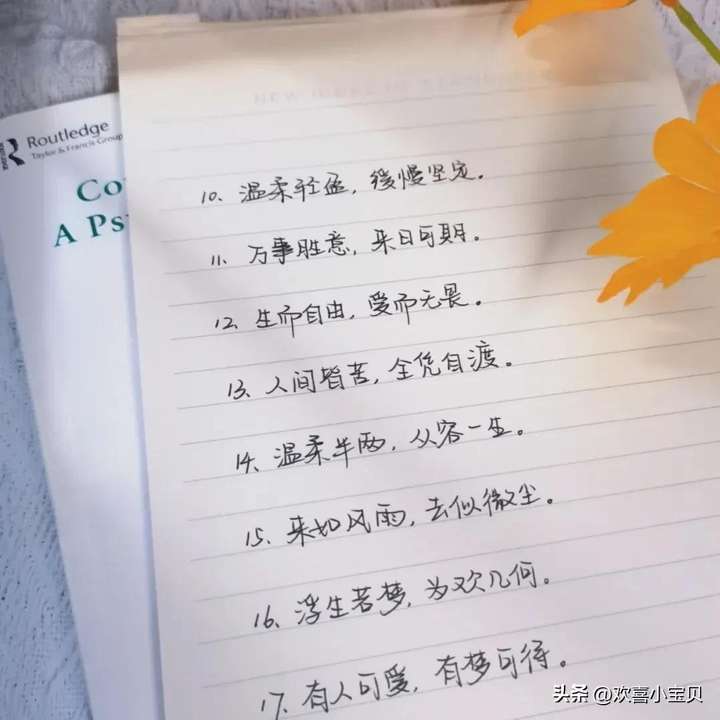 Routledge
Taylor & Francis Group
Co
A Ps
10、温柔轻盈，缓慢坚定。
11、万事胜意，来日可期。
12、生而自由，爱而无畏。
13、人间皆苦，全凭自渡。
14、温柔半两，从容一生。
15、来如风雨，去似微尘。
16、浮生若梦，为欢几何。
17、有人可爱，有梦可待。
头条 @欢喜小宝贝